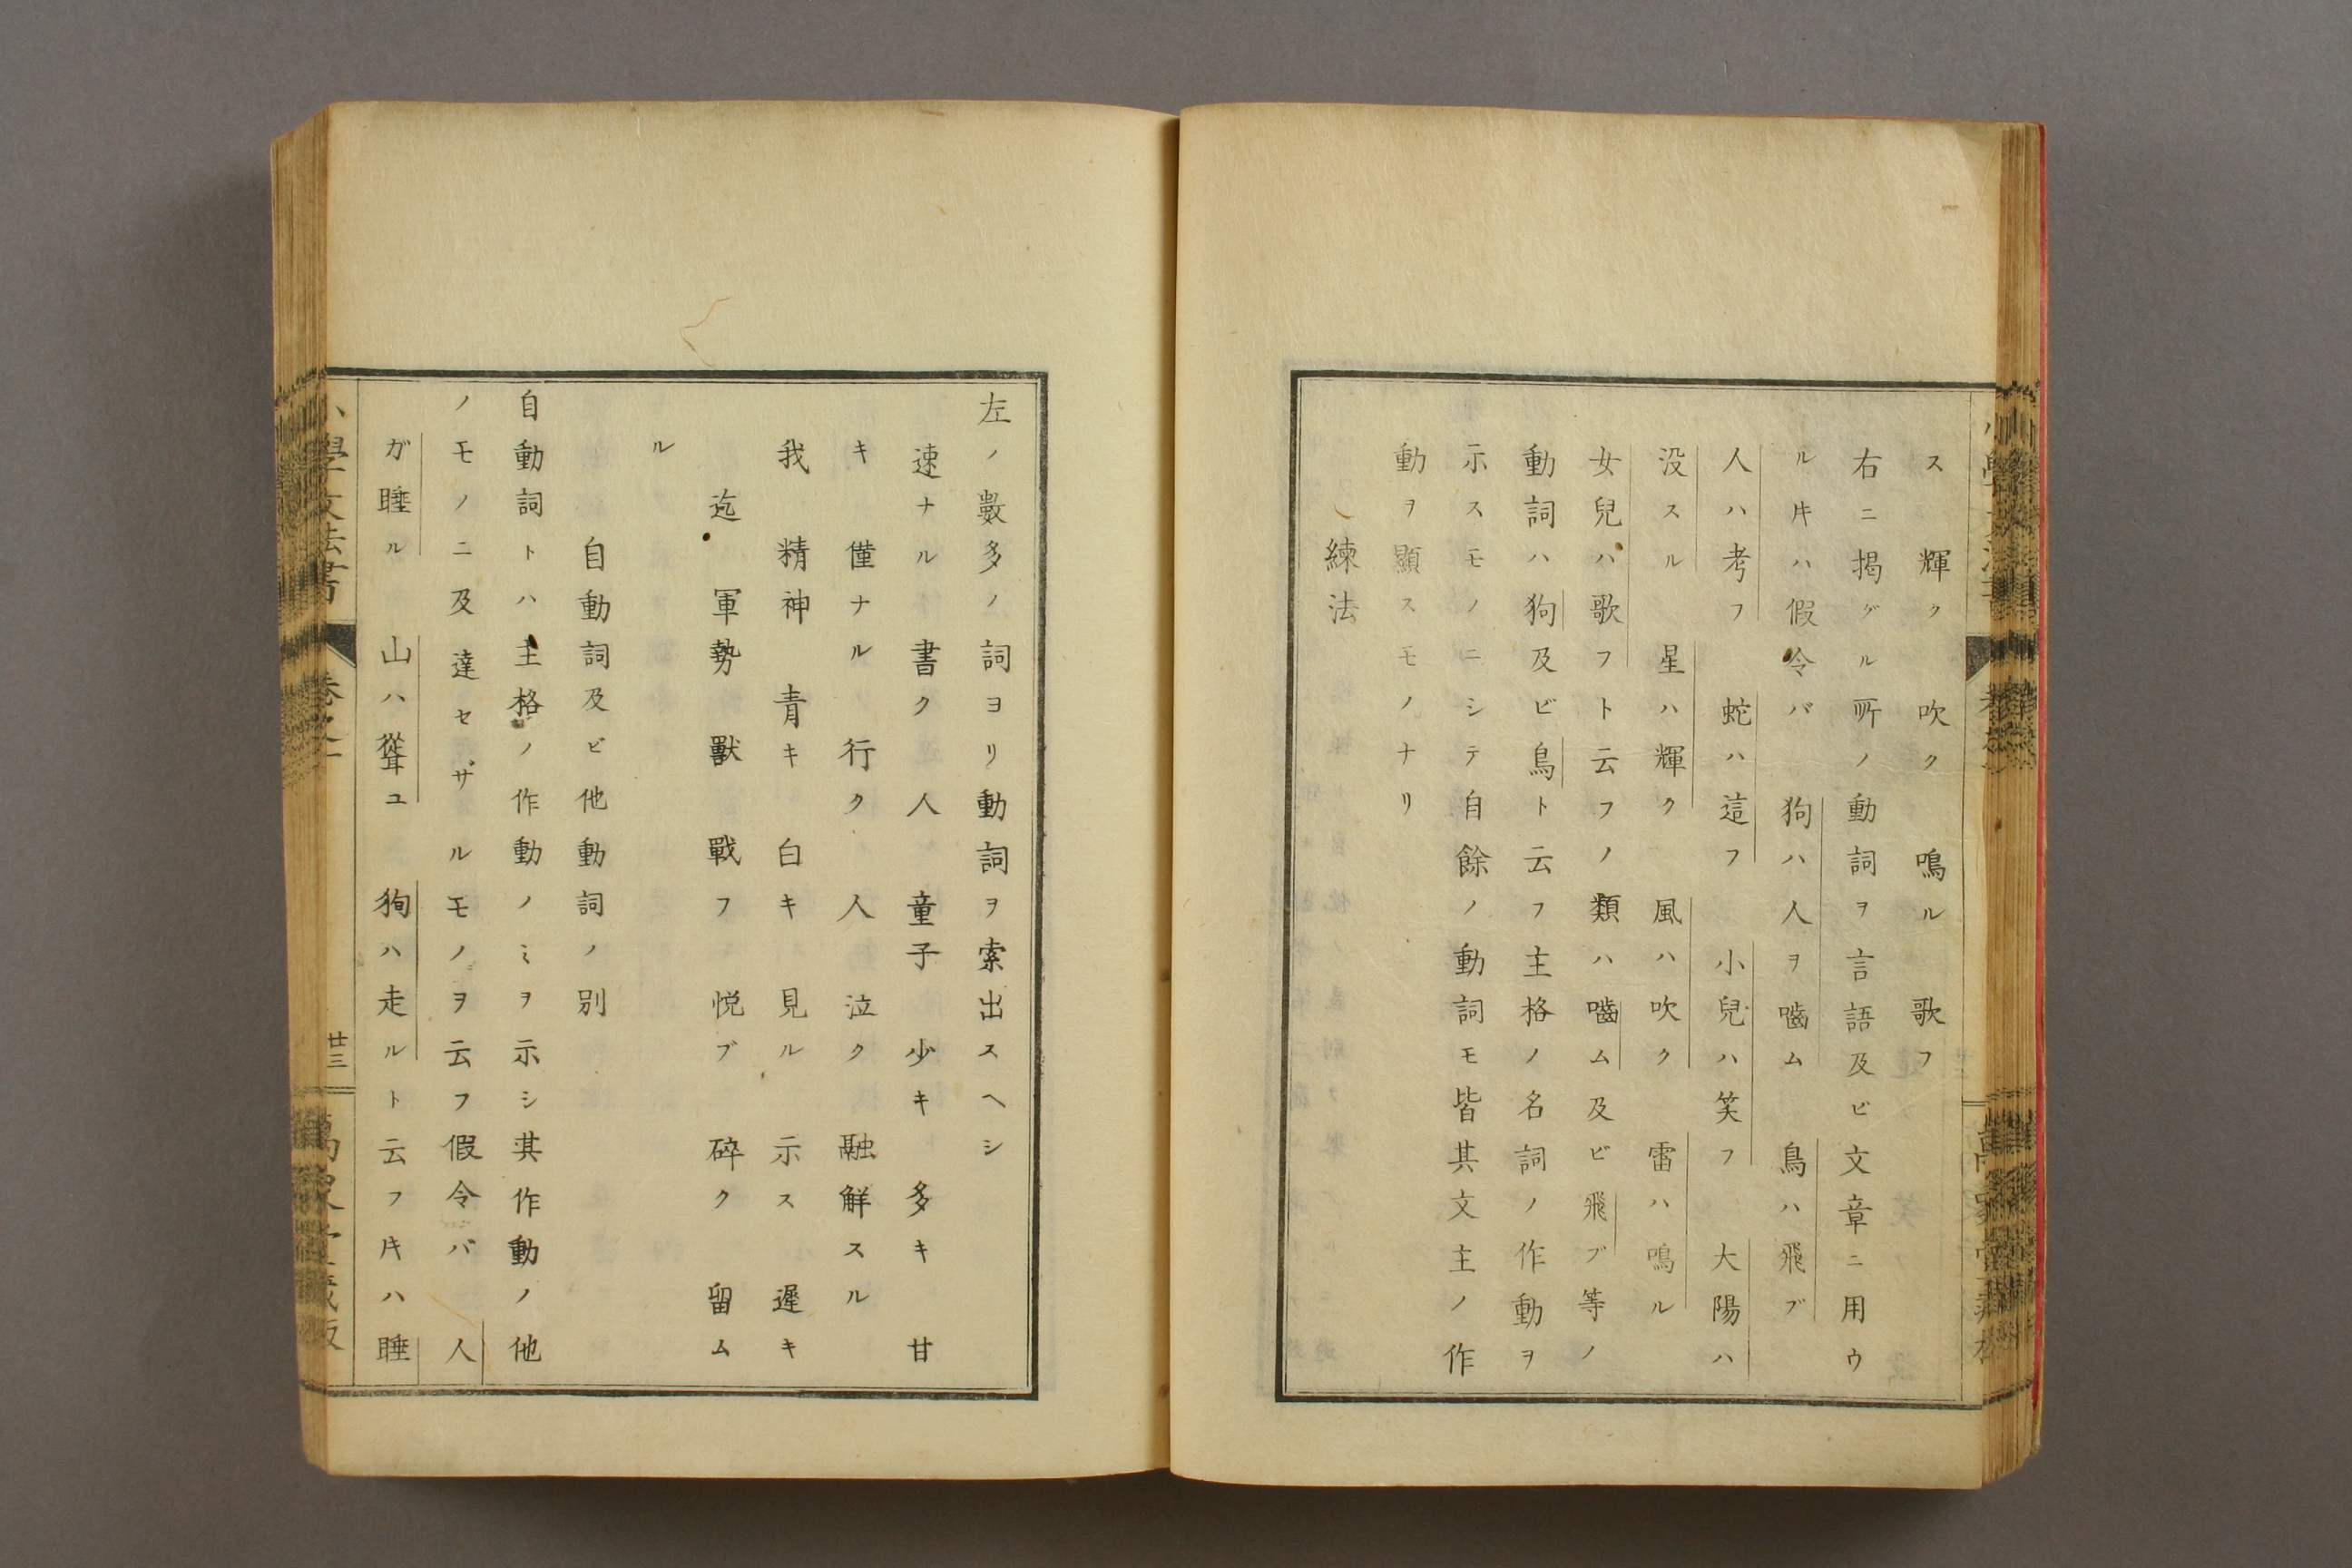 ス　輝ク　吹ク　鳴ル　歌フ
右ニ揭グル所ノ動詞ヲ言語及ビ文章ニ用ウ
ル𪜈ハ假令バ　狗ハ人ヲ嚙ム　鳥ハ飛ブ
人ハ考フ　蛇ハ這フ　小兒ハ笑フ　大陽ハ
没スル　星ハ輝ク　風ハ吹ク　雷ハ鳴ル
女兒ハ歌フト云フノ類ハ嚙ム及ビ飛ブ等ノ
動詞ハ狗及ビ鳥ト云フ主格ノ名詞ノ作動ヲ
示スモノニシテ自餘ノ動詞モ皆其文主ノ作
動ヲ顯スモノナリ
練法
左ノ數多ノ詞ヨリ動詞ヲ索出スヘシ
速ナル　書ク人　童子　少キ　多キ　甘
キ　僅ナル　行ク　人　泣ク　融解スル
我　精神　青キ　白キ　見ル　示ス　遲キ
迄　軍勢　獸　戰フ　悦ブ　碎ク　留ム
ル
自動詞及ビ他動詞ノ別
自動詞トハ主格ノ作動ノミヲ示シ其作動ノ他
ノモノニ及達セザルモノヲ云フ假令バ　人
ガ睡ル　山ハ聳ユ　狗ハ走ルト云フ𪜈ハ睡
小學文法書
卷之二
廿三